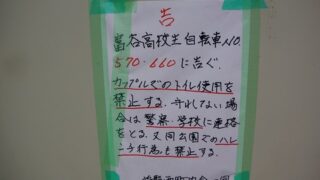 告
富谷高校生自転車NO.
570・660に告ぐ.
カップルでのトイレ使用を
禁止する. 守れしない場
合は警察・学校に連絡
をとる. 又用公園でのハレ
ンチ行為も禁止する.